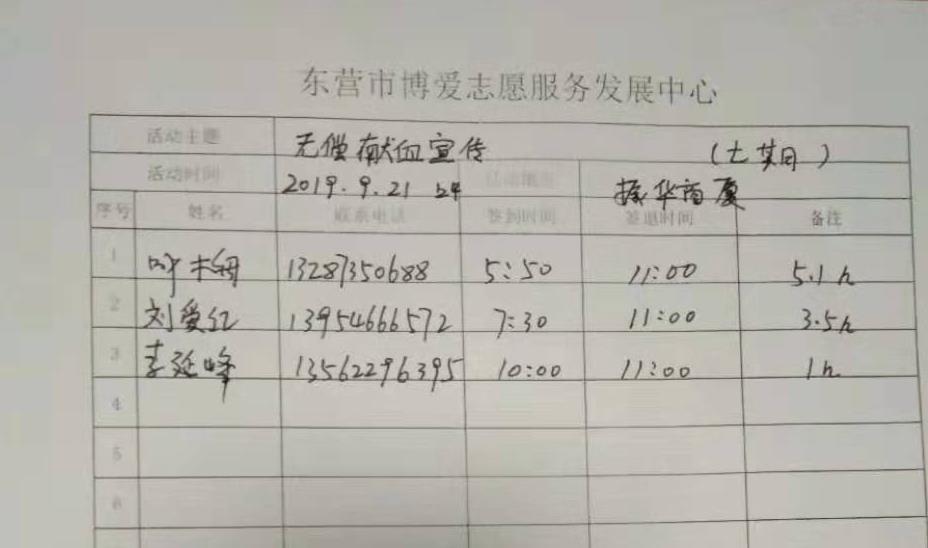 东营市博爱志愿服务发展中心
活动主题 无偿献血宣传
活动时间 2019.9.21 活动地点 振华商厦
序号 姓名 联系电话 签到时间 签退时间 备注
1 13287350688 5:50 11:00 5.1h
2 刘爱红 13954666572 7:30 11:00 3.5h
3 李延峰 13562296395 10:00 11:00 1h
4
5
6